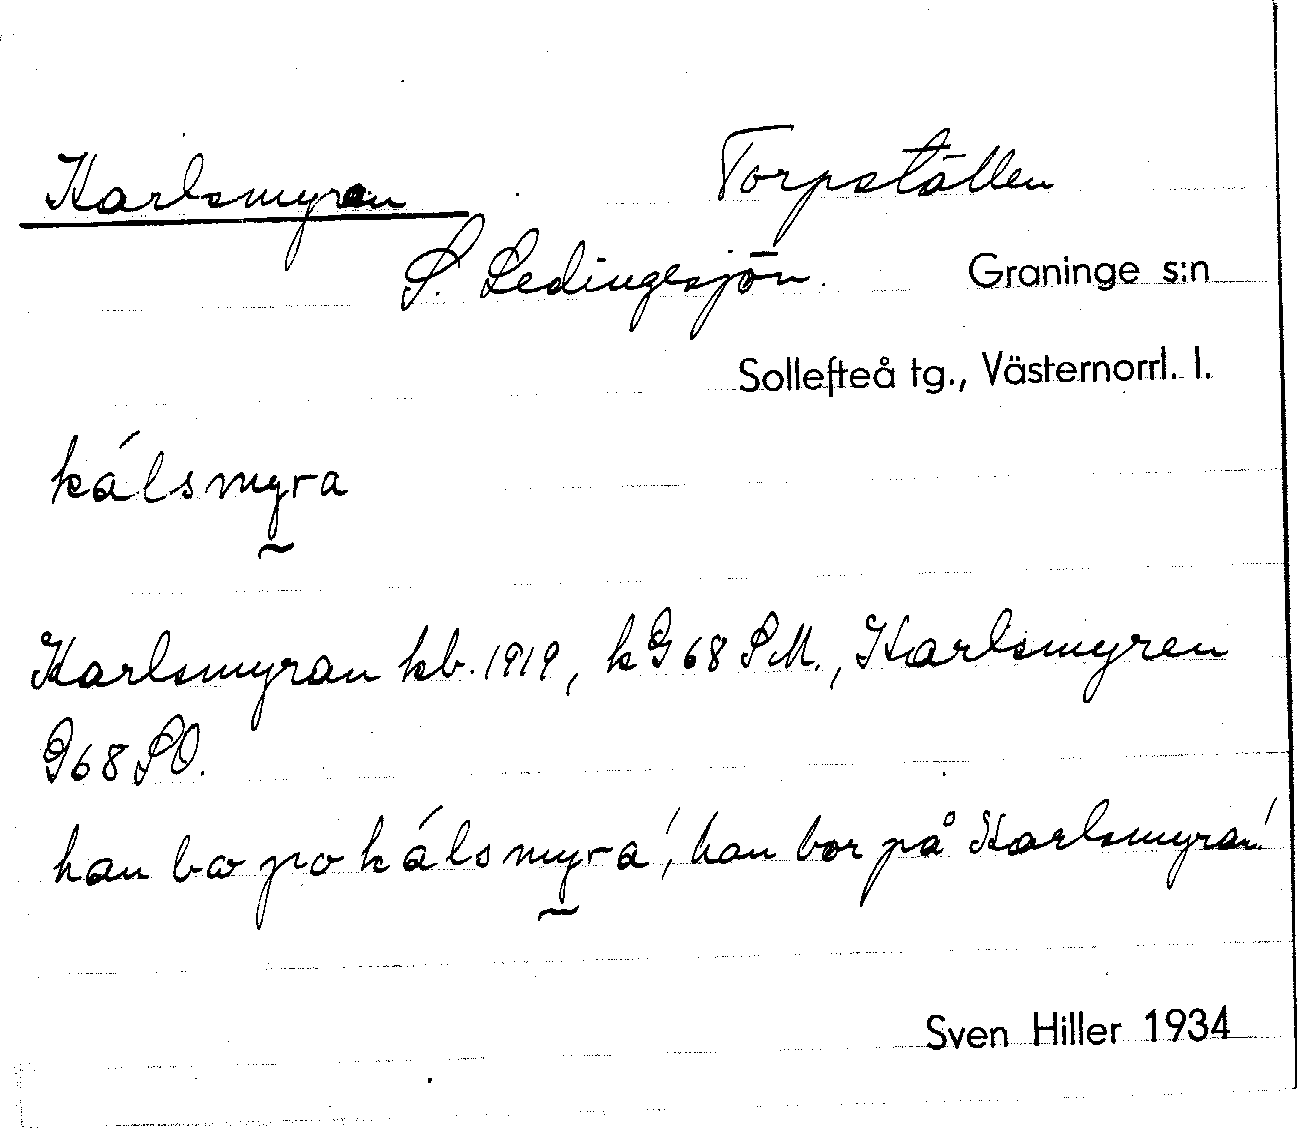 Karlsmyren Torpställen
S. Ledingesjön. Graninge s:n
Sollefteå tg., Västernorrl. l.
kálsmyra
Karlsmyran kb. 1919, kG68SM., Karlsmyren
G68SO.
han bo po kálsmyra', han bor på Karlsmyran!
Sven Hiller 1934